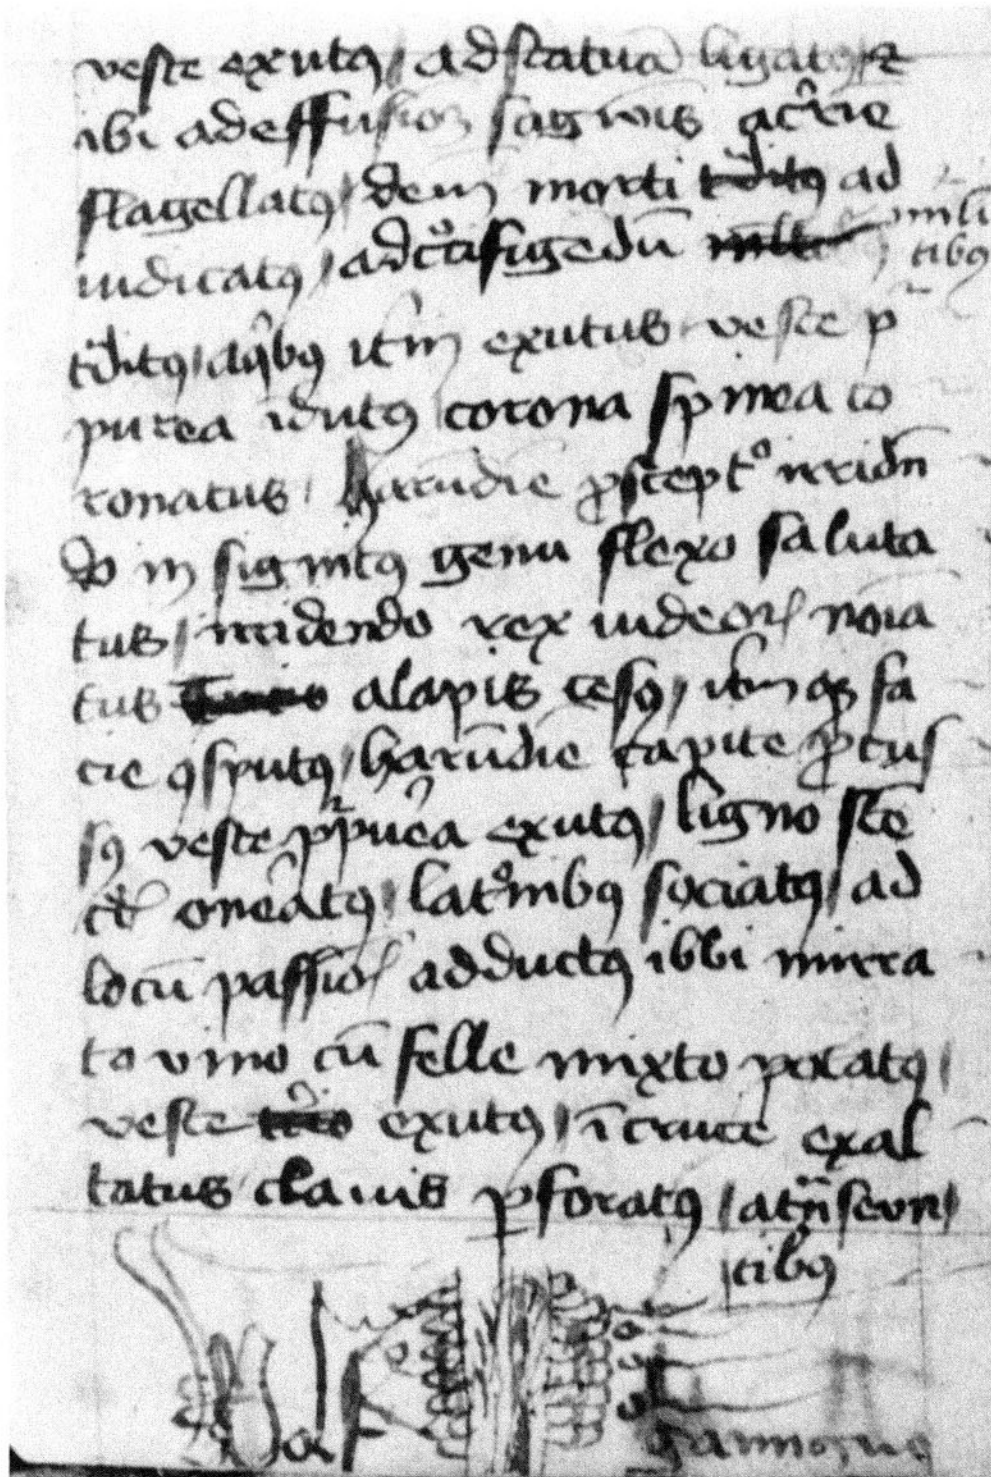 veste exutꝰ / ad statuā ligatꝰ ⁊
ibi ad effusioꝫ sāgwīs acrīe
flagellatꝰ / dem morti ad
iudicatꝰ / ad crͦcifigēdū mili
tibꝰ
tͣditꝰ / a qͥbꝰ itm̄ exutus veste pᷣ
purea īdutꝰ corona spinea co
ronatus / harūdīe ꝓ sceptͦ irridn̄
do insignitꝰ genu flexo saluta
tus / irridendo rex iudeoꝝ noīa
tus alapis cesꝰ / itm̄ fa
cie ꝯsputꝰ / harūdīe capite ꝑcus
sꝰ veste pᷣpūea exutꝰ / ligno stē
onēatꝰ / latͦnibꝰ sociatꝰ / ad
locū passioꝭ adductꝰ ibbi mirra
to vino cū felle mixto potatꝰ /
veste exutꝰ / ī cruce exal
tatus clavis ꝑforatꝰ /
tibꝰ